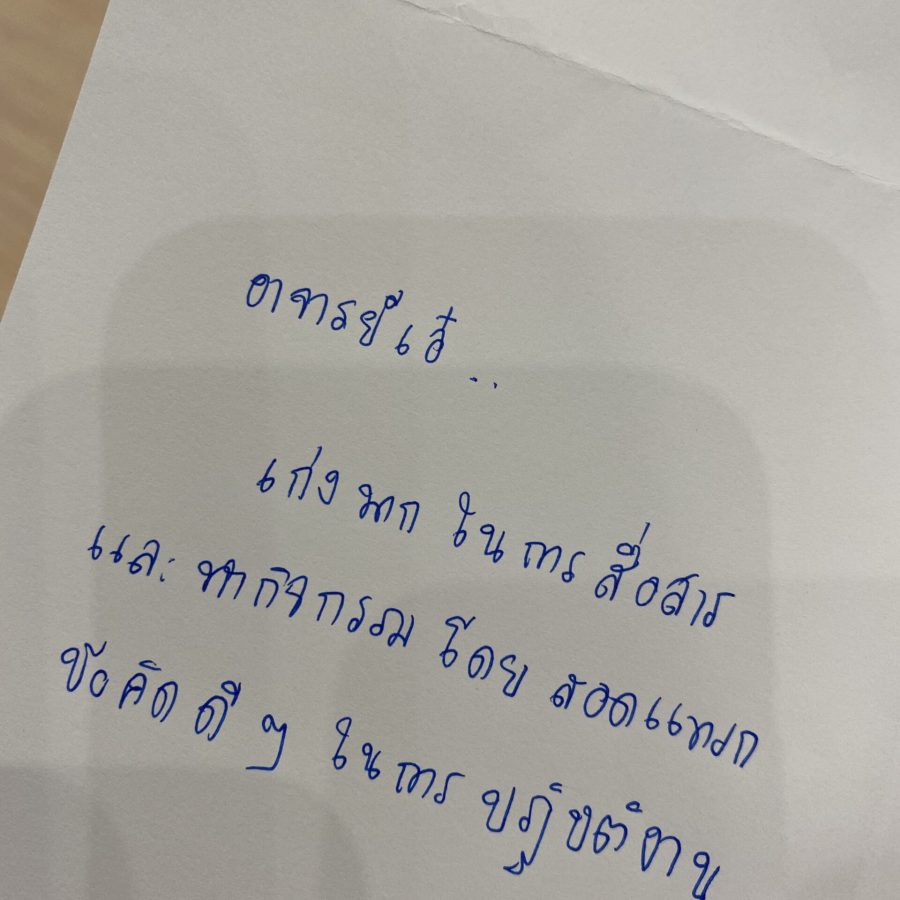 อาจารย์เอ๋..
เก่งมาก ในการสื่อสาร
และ ทำกิจกรรม โดย สอดแทรก
ข้อคิด ดี ๆ ในการ ปฏิบัติงาน